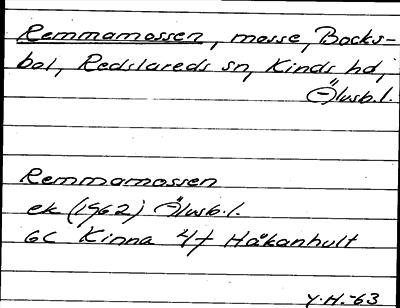 Remmamossen, mosse, Bocks-
bol, Redslareds sn, Kinds hd,
Älvsb.l.
Remmamossen
ek (1962) Älvsb.l.
6C Kinna 4f Håkanhult
Y.H.-63